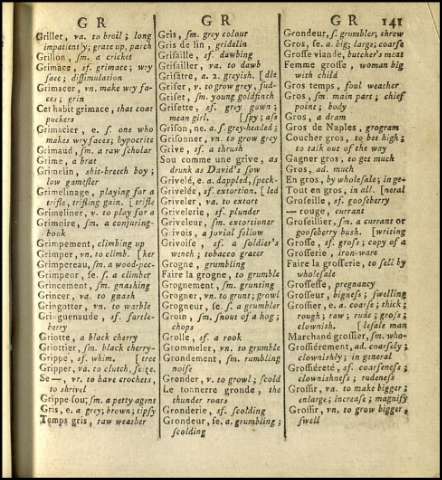 G R
Griller, va. to broil; long
impatiently; grate up, parch
Grillon, sm. a cricket
Grimace, sf. grimace; wry
face; dissimulation
Grimacer, vn. make wry fa-
ces; grin
Cet habit grimace, that coat
puckers
Grimacier, e. s. one who
makes wry faces; hypocrite
Grimaud, sm. a raw scholar
Grime, a brat
Grimelin, shit-breech boy;
low gamester
Grimelinage, playing for a
trifle, trifling gain. [trifle
Grimeliner, v. to play for a
Grimoire, sm. a conjuring-
book
Grimpement, climbing up
Grimper, vn. to climb. [ker
Grimpereau, sm. a wood-pec-
Grimpeur, se. s. a climber
Grincement, sm. gnashing
Grincer, va. to gnash
Gringotter, vn. to warble
Gri-guenaude, sf. furtle-
berry
Griotte, a black cherry
Griottier, sm. black cherry-
Grippe, sf. whim. [tree
Gripper, va. to clutch, seize.
Se—, vr. to have crochets,
to shrivel
Grippe-sou, sm. a petty agent
Gris, e. a. grey; brown; tipsy
Temps gris, raw weather
G R
Gris, sm. grey colour
Gris de lin, gridelin
Grisaille, sf. dawbing
Grisailler, va. to dawb
Grisâtre, a. 2. greyish. [dle
Griser, v. to grow grey, fud-
Griset, sm. young goldfinch
Grisette, sf. grey gown;
mean girl. [spy; ass
Grison, ne. a. s. grey-headed;
Grisonner, vn. to grow grey
Grive, sf. a thrush
Sou comme une grive, as
drunk as David's sow
Grivelé, e. a. dappled, speck-
Grivelée, sf. extortion. [led
Griveler, va. to extort
Grivelerie, sf. plunder
Griveleur, sm. extortioner
Grivois, a jovial fellow
Grivoise, sf. a soldier's
wench; tobacco grater
Grogne, grumbling
Faire la grogne, to grumble
Grognement, sm. grunting
Grogner, vn. to grunt; growl
Grogneur, se. s. a grumbler
Groin, sm. snout of a hog;
chops
Grolle, sf. a rook
Grommeler, vn. to grumble
Grondement, sm. rumbling
noise
Gronder, v. to growl; scold
Le tonnerre gronde, the
thunder roars
Gronderie, sf. scolding
Grondeur, se. a. grumbling;
scolding
G R 141
Grondeur, s. grumbler, shrew
Gros, se. a. big; large; coarse
Grosse viande, butcher's meat
Femme grosse, woman big
with child
Gros temps, foul weather
Gros, sm. main part; chief
point; body
Gros, a dram
Gros de Naples, grogram
Coucher gros, to bet high;
to talk out of the way
Gagner gros, to get much
Gros, ad. much
En gros, by wholesale; in ge-
Tout en gros, in all. [neral
Groseille, sf. gooseberry
— rouge, currant
Groseillier, sm. a currant or
gooseberry bush. [writing
Grosse, sf. gross; copy of a
Grosserie, iron-ware
Faire la grosserie, to sell by
wholesale
Grossesse, pregnancy
Grosseur, bigness; swelling
Grossier, e. a. coarse; thick;
rough; raw; rude; gross;
clownish. [lesale man
Marchand grossier, sm. who-
Grossièrement, ad. coarsely;
clownishly; in general
Grossièreté, sf. coarseness;
clownishness; rudeness
Grossir, va. to make bigger;
enlarge; increase; magnify
Grossir, vn. to grow bigger,
swell